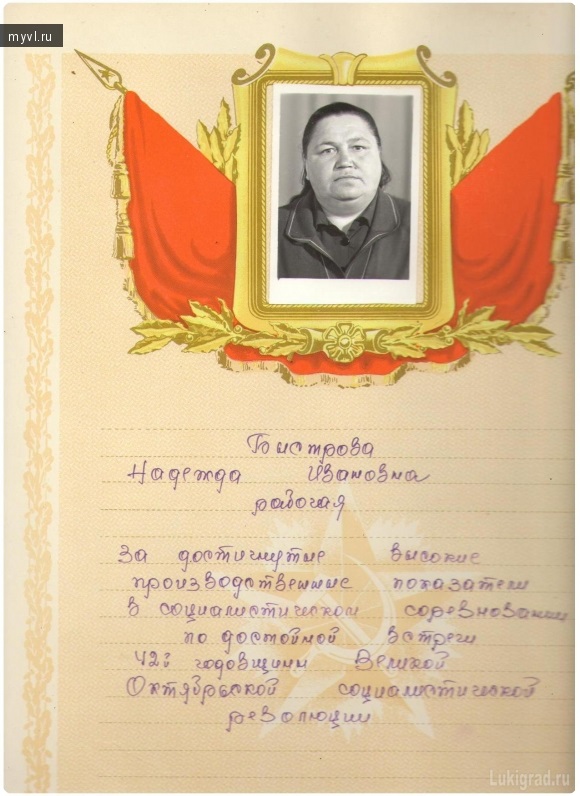 myvl.ru
Быстрова
Надежда Ивановна
рабочая
За достигнутые высокие
производственные показатели
в социалистическом соревновании
по достойной встречи
42й годовщины Великой
Октябрьской социалистической
революции
Lukigrad.ru